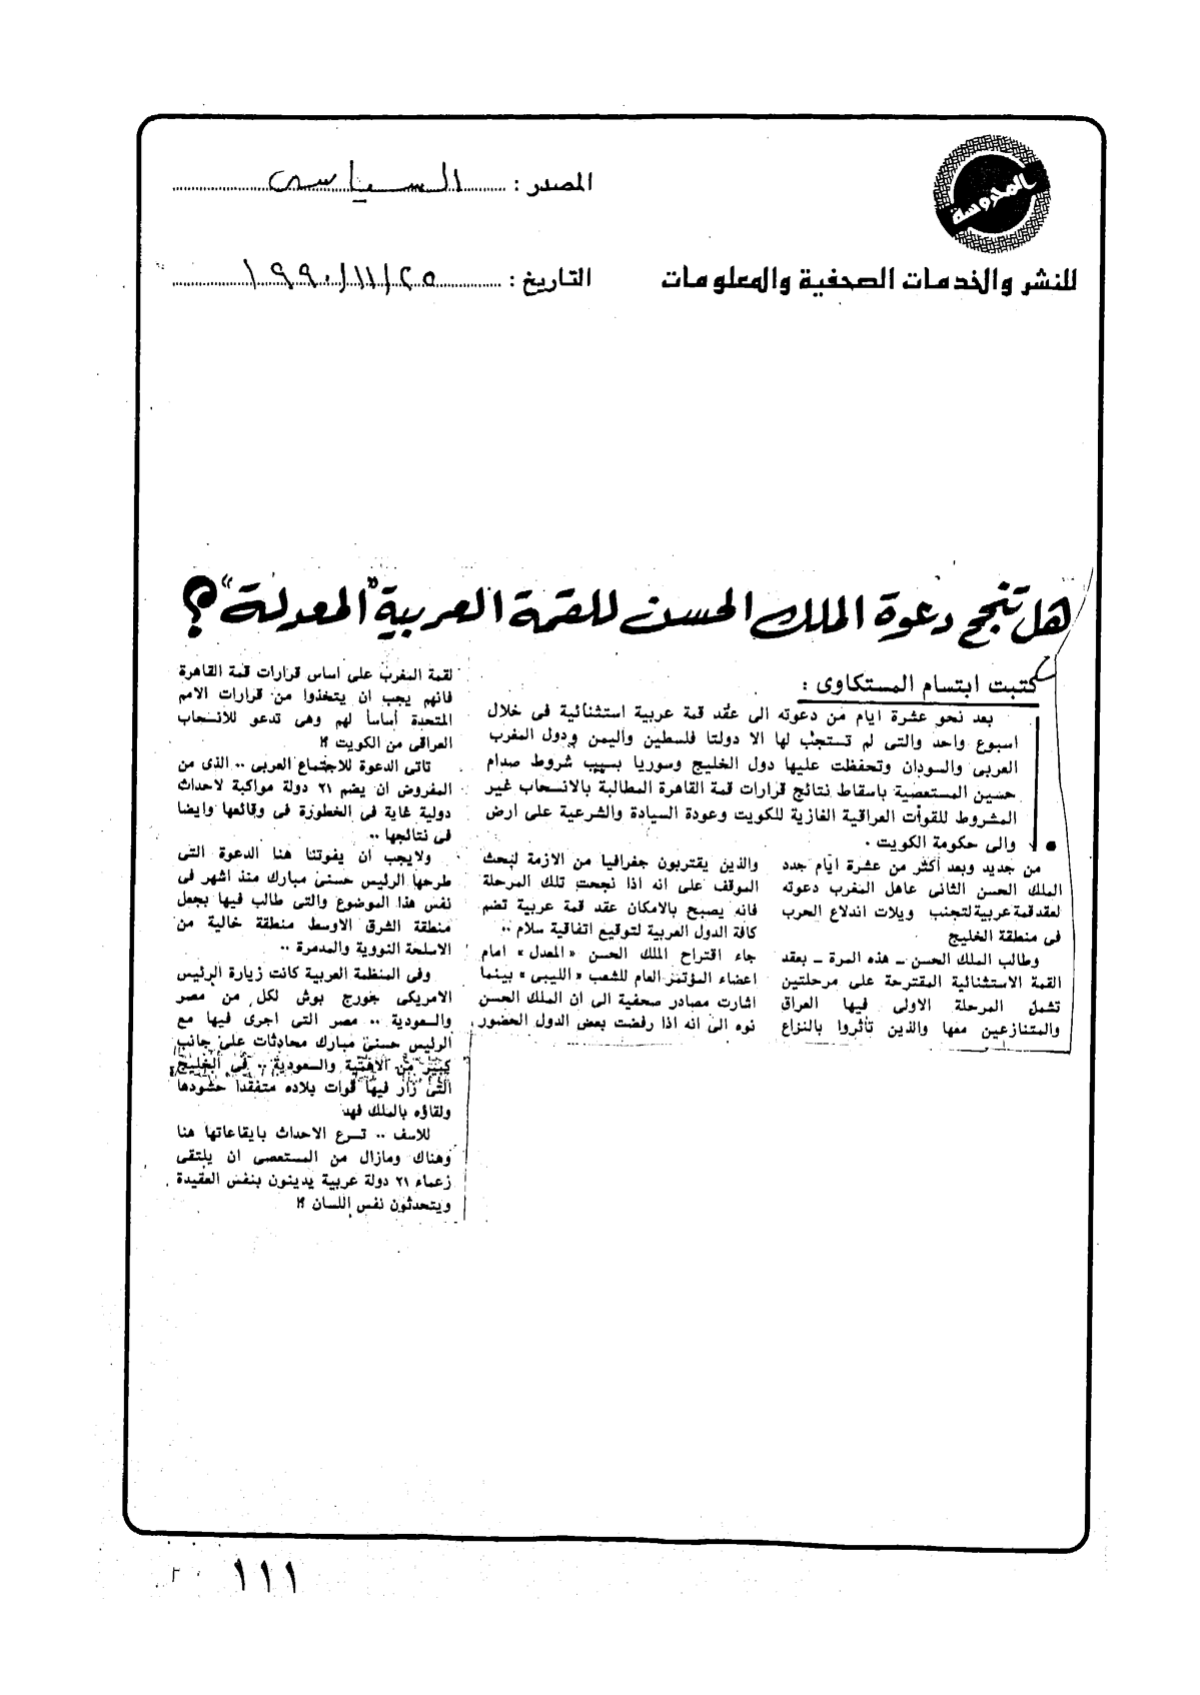 المحروسة
للنشر والخدمات الصحفية والمعلومات
المصدر : السياسى
التاريخ : ٢٥/١١/١٩٩٠
هل تنجح دعوة الملك الحسن للقمة العربية "المعدلة" ؟
كتبت ابتسام المستكاوى :
بعد نحو عشرة ايام من دعوته الى عقد قمة عربية استثنائية فى خلال
اسبوع واحد والتى لم تستجب لها الا دولتا فلسطين واليمن ودول المغرب
العربى والسودان وتحفظت عليها دول الخليج وسوريا بسبب شروط صدام
حسين المستعصية باسقاط نتائج قرارات قمة القاهرة المطالبة بالانسحاب غير
المشروط للقوات العراقية الغازية للكويت وعودة السيادة والشرعية على ارض
والى حكومة الكويت .
من جديد وبعد أكثر من عشرة ايام جدد
الملك الحسن الثانى عاهل المغرب دعوته
لعقد قمة عربية لتجنب ويلات اندلاع الحرب
فى منطقة الخليج
وطالب الملك الحسن ــ هذه المرة ــ بعقد
القمة الاستثنائية المقترحة على مرحلتين
تشمل المرحلة الاولى فيها العراق
والمتنازعين معها والذين تأثروا بالنزاع
والذين يقتربون جغرافيا من الازمة لبحث
الموقف على انه اذا نجحت تلك المرحلة
فانه يصبح بالامكان عقد قمة عربية تضم
كافة الدول العربية لتوقيع اتفاقية سلام ..
جاء اقتراح الملك الحسن « المعدل » امام
اعضاء المؤتمر العام للشعب « الليبى » بينما
اشارت مصادر صحفية الى ان الملك الحسن
نوه الى انه اذا رفضت بعض الدول الحضور
لقمة المغرب على اساس قرارات قمة القاهرة
فانهم يجب ان يتخذوا من قرارات الامم
المتحدة أساسا لهم وهى تدعو للانسحاب
العراقى من الكويت ؟!
تاتى الدعوة للاجتماع العربى .. الذى من
المفروض ان يضم ٢١ دولة مواكبة لاحداث
دولية غاية فى الخطورة فى وقائعها وايضا
فى نتائجها ..
ولايجب ان يفوتنا هنا الدعوة التى
طرحها الرئيس حسنى مبارك منذ اشهر فى
نفس هذا الموضوع والتى طالب فيها بجعل
منطقة الشرق الاوسط منطقة خالية من
الاسلحة النووية والمدمرة ..
وفى المنظمة العربية كانت زيارة الرئيس
الامريكى جورج بوش لكل من مصر
والسعودية .. مصر التى اجرى فيها مع
الرئيس حسنى مبارك محادثات على جانب
كبير من الاهمية والسعودية .. فى الخليج
التى زار فيها قوات بلاده متفقدا حشودها
ولقاؤه بالملك فهد
للاسف .. تسرع الاحداث بايقاعاتها هنا
وهناك ومازال من المستعصى ان يلتقى
زعماء ٢١ دولة عربية يدينون بنفس العقيدة
ويتحدثون نفس اللسان ؟!
١١١